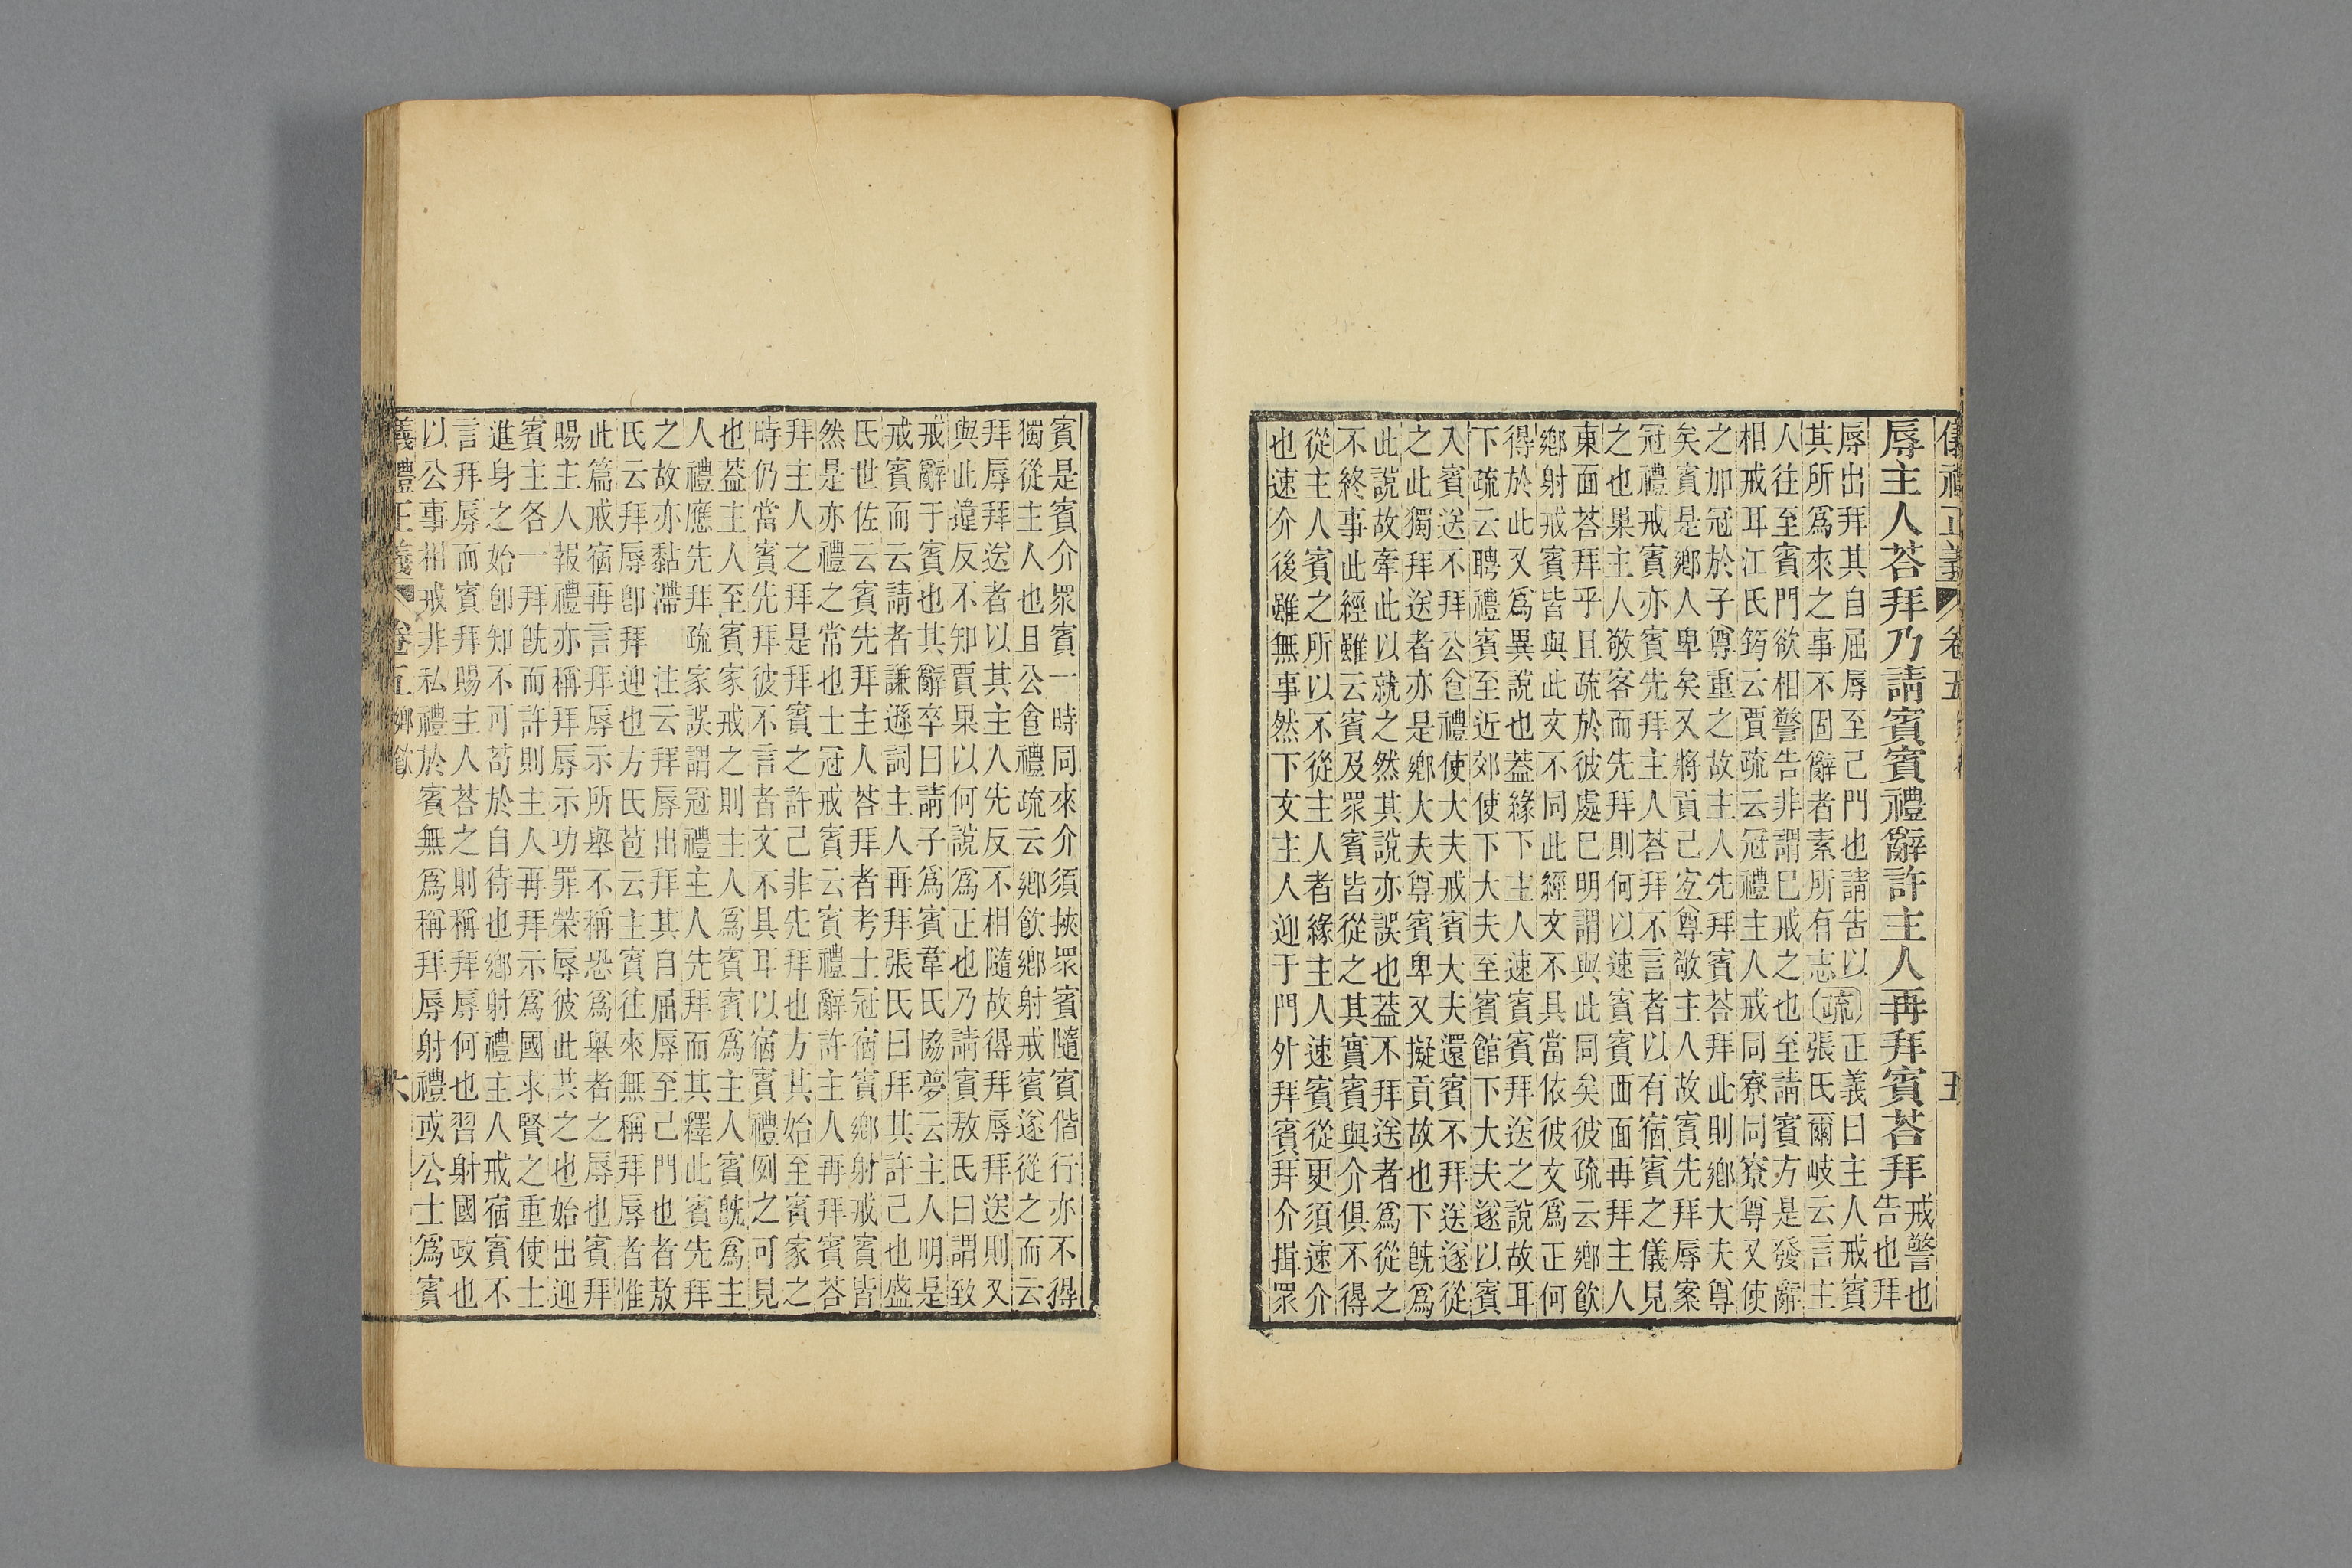 儀禮正義 卷五 五
辱主人荅拜乃請賓賓禮辭許主人再拜賓荅拜
戒警也
告也拜
辱出拜其自屈辱至己門也請告以
其所爲來之事不固辭者素所有志
疏
正義曰主人戒賓
張氏爾岐云言主
人往至賓門欲相警告非謂巳戒之也至請賓方是發辭
相戒耳江氏筠云賈疏云冠禮主人戒同寮同寮尊又使
之加冠於子尊重之故主人先拜賓荅拜此則鄉大夫尊
矣賓是鄉人卑矣又將貢己宐尊敬主人故賓先拜辱案
冠禮戒賓亦賓先拜主人荅拜不言者以有宿賓之儀見
之也果主人敬客而先拜則何以速賓賓西面再拜主人
東面荅拜乎且疏於彼處巳明謂與此同矣彼疏云鄉飮
鄉射戒賓皆與此文不同此經文不具當依彼文爲正何
得於此又爲異說也蓋緣下主人速賓賓拜送之說故耳
下疏云聘禮賓至近郊使下大夫至賓館下大夫遂以賓
入賓送不拜公食禮使大夫戒賓大夫還賓不拜送遂從
之此獨拜送者亦是鄉大夫尊賓卑又擬貢故也下既爲
此說故牽此以就之然其說亦誤也蓋不拜送者爲從之
不終事此經雖云賓及眾賓皆從之其實賓與介俱不得
從主人賓之所以不從主人者緣主人速賓從更須速介
也速介後雖無事然下文主人迎于門外拜賓拜介揖眾
賓是賓介眾賓一時同來介須挾眾賓隨賓偕行亦不得
獨從主人也且公食禮疏云鄉飮鄉射戒賓遂從之而云
拜辱拜送者以其主人先反不相隨故得拜辱拜送則又
與此違反不知賈果以何說爲正也乃請賓敖氏曰謂致
戒辭于賓也其辭卒曰請子爲賓韋氏協夢云主人明是
戒賓而云請者謙遜詞主人再拜張氏曰拜其許己也盛
氏世佐云賓先拜主人荅拜者考士冠宿賓鄉射戒賓皆
然是亦禮之常也士冠戒賓云賓禮辭許主人再拜賓荅
拜主人之拜是拜賓之許己非先拜也方其始至賓家之
時仍當賓先拜彼不言者文不具耳以宿賓禮例之可見
也蓋主人至賓家戒之則主人爲賓賓爲主人賓既爲主
人禮應先拜疏家誤謂冠禮主人先拜而其釋此賓先拜
之故亦黏滯 注云拜辱出拜其自屈辱至己門也者敖
氏云拜辱卽拜迎也方氏苞云主賓往來無稱拜辱者惟
此篇戒宿再言拜辱示所舉不稱恐爲舉者之辱也賓拜
賜主人報禮亦稱拜辱示功罪榮辱彼此共之也始出迎
賓主各一拜既而許則主人再拜示爲國求賢之重使士
進身之始卽知不可苟於自待也鄉射禮主人戒宿賓不
言拜辱而賓拜賜主人荅之則稱拜辱何也習射國政也
以公事相戒非私禮於賓無爲稱拜辱射禮或公士爲賓
儀禮正義 卷五 鄉飮 六